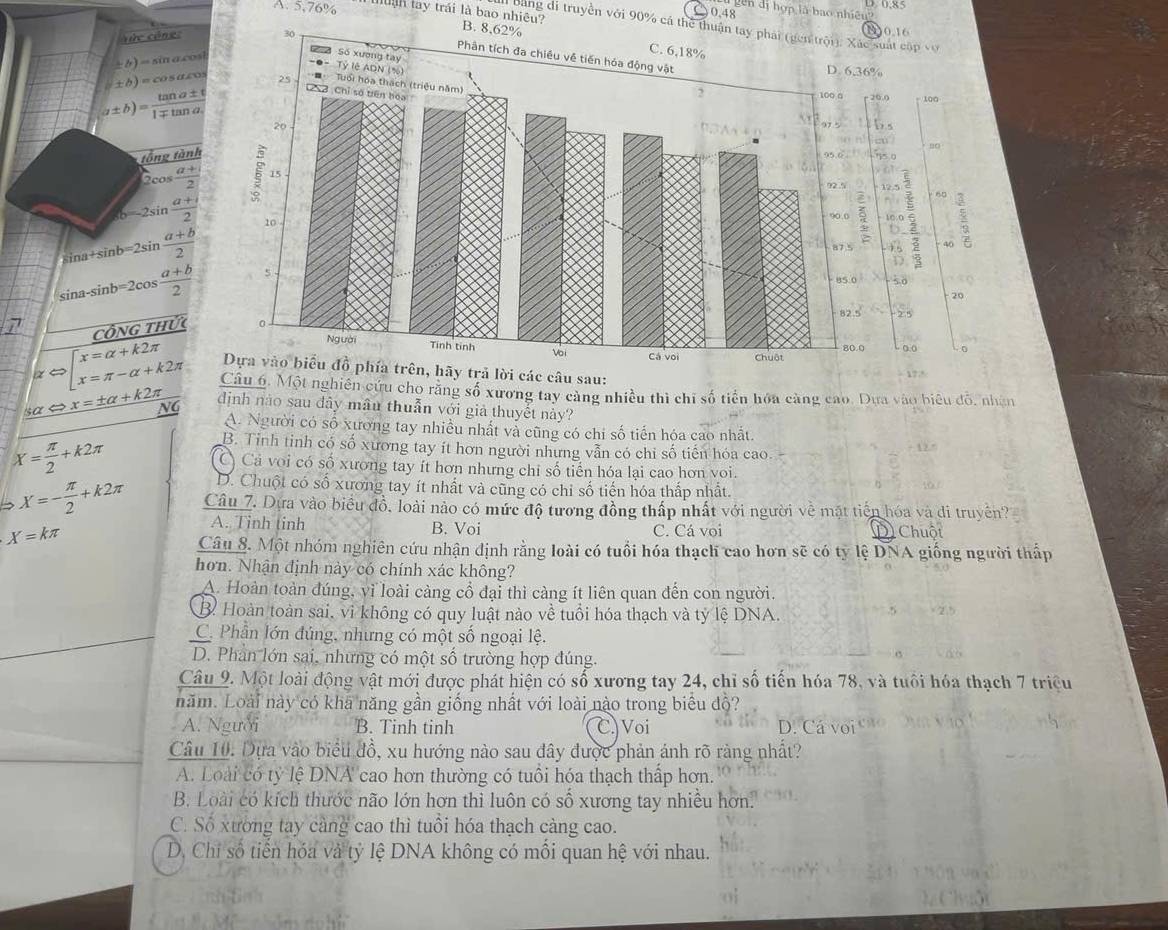 A. 5,76%
B. 8,62%
C. 6,18%
D. 6,36%
0,48
D. 0,85
0,16
tay trái là bao nhiêu?
di truyền với 90% cá thể thuận tay phải (gen trội). Xác suất cặp vợ
Phân tích đa chiều về tiến hóa động vật
Số xương tay
Tỷ lệ ADN (%)
Tuổi hóa thạch (triệu năm)
Chỉ số tiến hóa
30
25
20
15
10
5
0
Số xương tay
Người
Tinh tinh
Voi
Cá voi
Chuột
100.0
97.5
95.0
92.5
90.0
87.5
85.0
82.5
80.0
Tỷ lệ ADN (%)
20.0
17.5
15.0
12.5
10.0
7.5
5.0
2.5
0.0
Tuổi hóa thạch (triệu năm)
100
80
60
40
20
0
Chỉ số tiến hóa
Dựa vào biểu đồ phía trên, hãy trả lời các câu sau:
Câu 6. Một nghiên cứu cho rằng số xương tay càng nhiều thì chỉ số tiến hóa càng cao. Dựa vào biểu đồ, nhận
định nào sau đây mâu thuẫn với giả thuyết này?
A. Người có số xương tay nhiều nhất và cũng có chỉ số tiến hóa cao nhất.
B. Tinh tinh có số xương tay ít hơn người nhưng vẫn có chỉ số tiến hóa cao.
C. Cá voi có số xương tay ít hơn nhưng chỉ số tiến hóa lại cao hơn voi.
D. Chuột có số xương tay ít nhất và cũng có chỉ số tiến hóa thấp nhất.
Câu 7. Dựa vào biểu đồ, loài nào có mức độ tương đồng thấp nhất với người về mặt tiến hóa và di truyền?
A. Tinh tinh
B. Voi
C. Cá voi
D. Chuột
Câu 8. Một nhóm nghiên cứu nhận định rằng loài có tuổi hóa thạch cao hơn sẽ có tỷ lệ DNA giống người thấp
hơn. Nhận định này có chính xác không?
A. Hoàn toàn đúng, vì loài càng cổ đại thì càng ít liên quan đến con người.
B. Hoàn toàn sai, vì không có quy luật nào về tuổi hóa thạch và tỷ lệ DNA.
C. Phần lớn đúng, nhưng có một số ngoại lệ.
D. Phần lớn sai, nhưng có một số trường hợp đúng.
Câu 9. Một loài động vật mới được phát hiện có số xương tay 24, chỉ số tiến hóa 78, và tuổi hóa thạch 7 triệu
năm. Loài này có khả năng gần giống nhất với loài nào trong biểu đồ?
A. Người
B. Tinh tinh
C. Voi
D. Cá voi
Câu 10. Dựa vào biểu đồ, xu hướng nào sau đây được phản ánh rõ ràng nhất?
A. Loài có tỷ lệ DNA cao hơn thường có tuổi hóa thạch thấp hơn.
B. Loài có kích thước não lớn hơn thì luôn có số xương tay nhiều hơn.
C. Số xương tay càng cao thì tuổi hóa thạch càng cao.
D. Chỉ số tiến hóa và tỷ lệ DNA không có mối quan hệ với nhau.
±b)=sin a.cos
±b)=cos a.cos
a±b)= tan a ± / 1∓tan a.
tổng
2cos a+ / 2
=-2sin a+ / 2
sina+sinb=2sin a+b / 2
sina-sinb=2cos a+b / 2
CÔNG THỨC
⇔ [ x = α + k2π
x = π - α + k2π
⇔ x = ±α + k2π
NG
X = π/2 + k2π
⇒ X = -π/2 + k2π
X = kπ